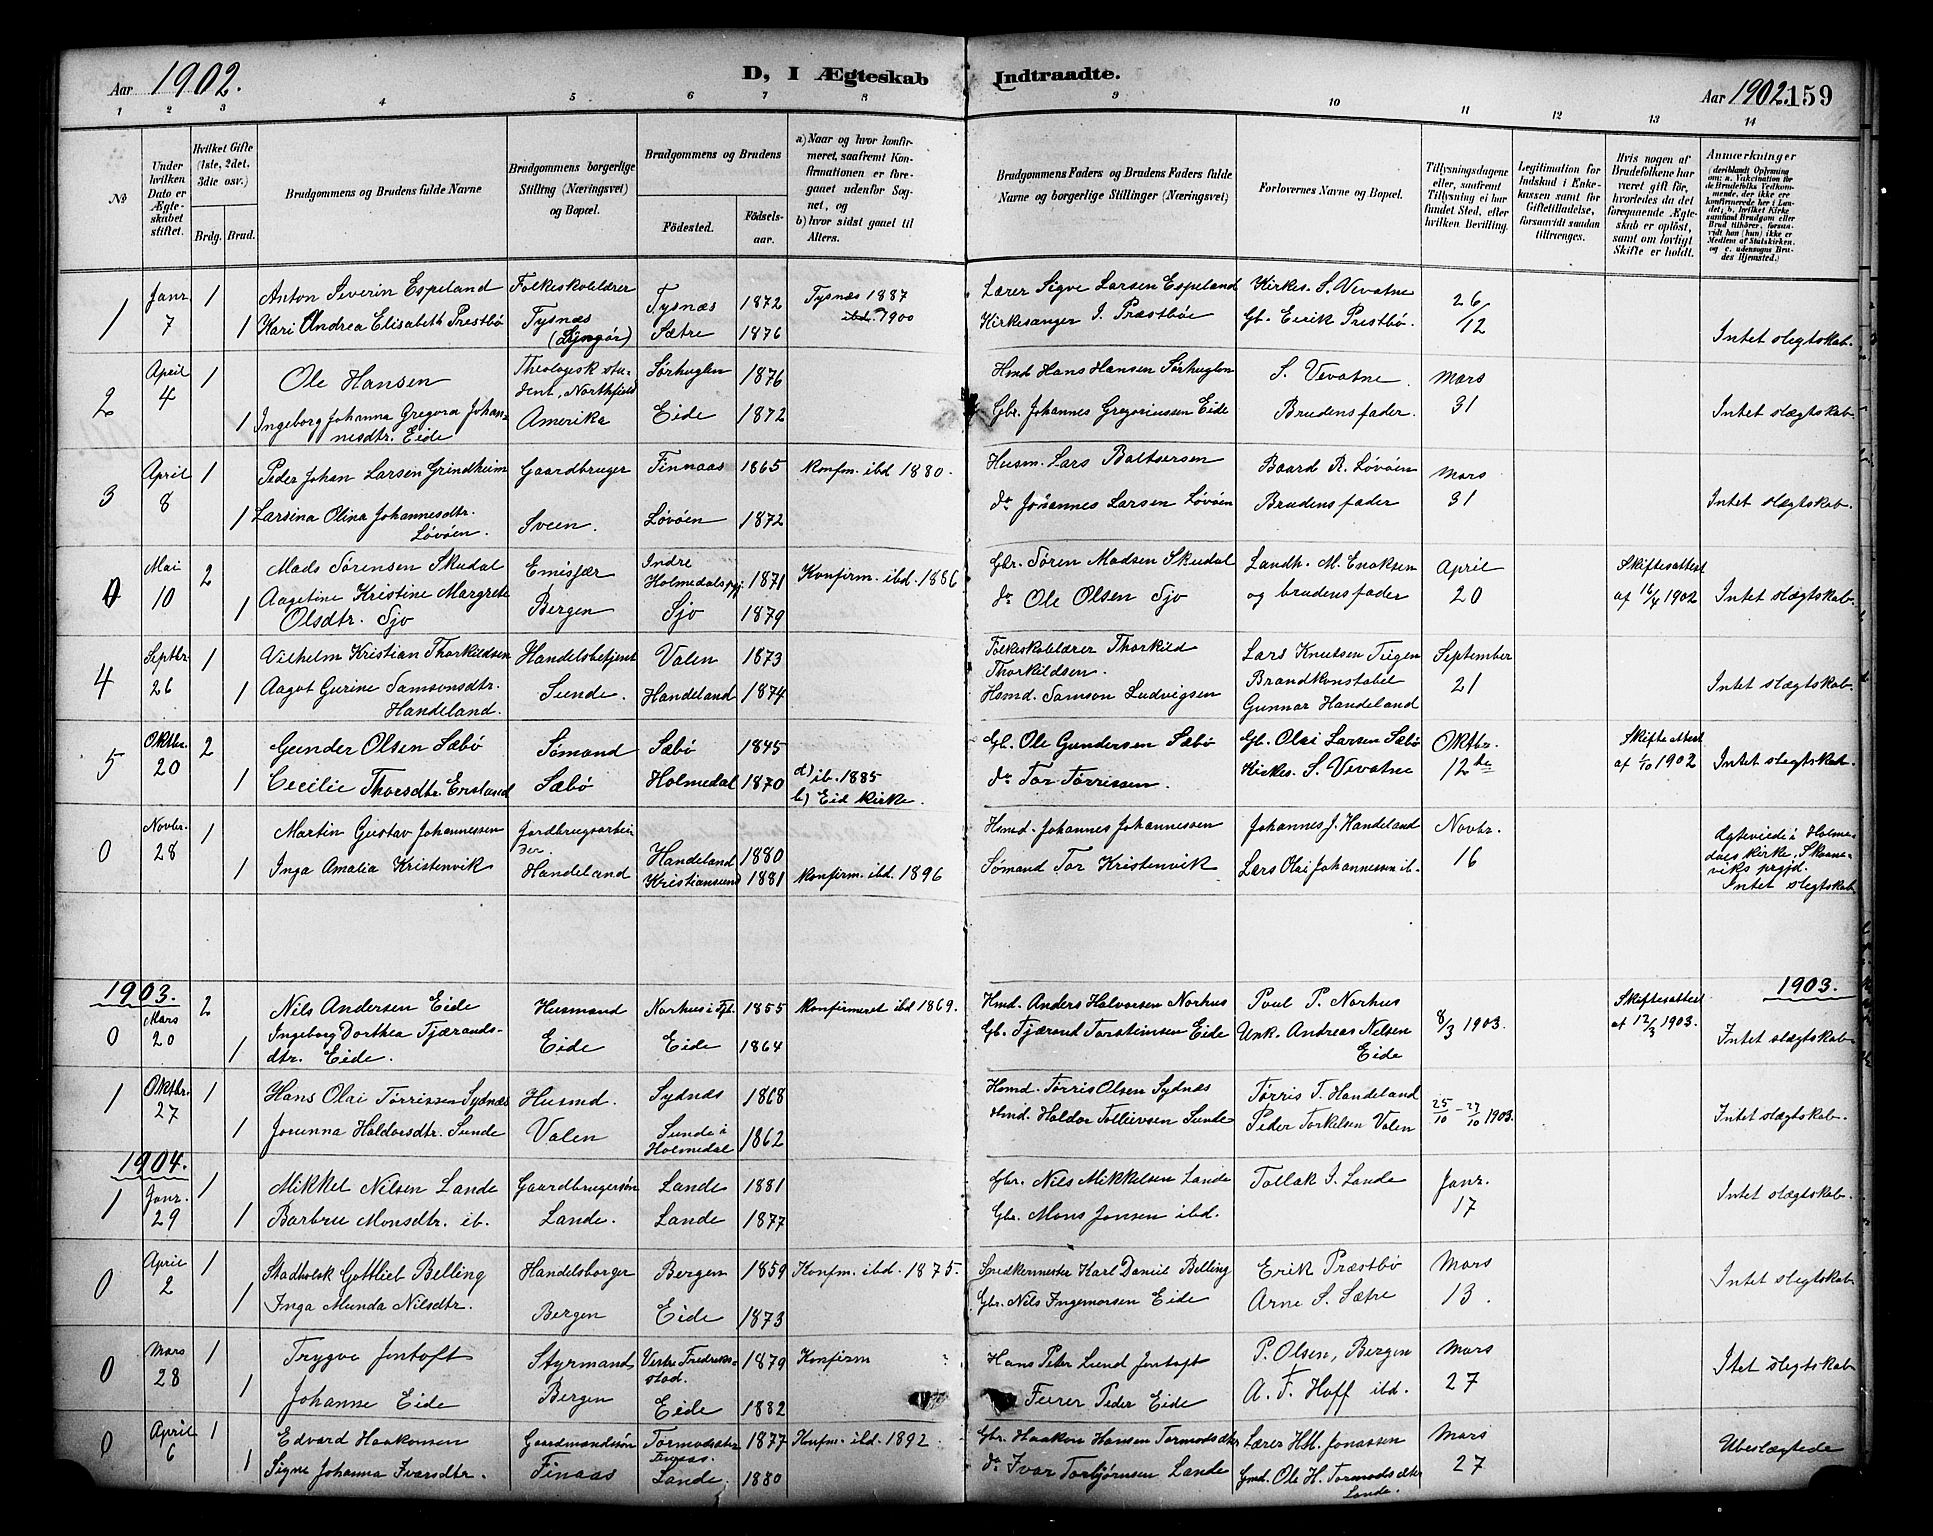 Aar 1902.
D, I Ægteskab Indtraadte.
Aar 1902. 159
1 2 3 4 5 6 7 8 9 10 11 12 13 14
№
Under hvilken Dato er Ægteskabet stiftet.
Hvilket Gifte (1ste, 2det, 3die osv.)
Brdg. Brud.
Brudgommens og Brudens fulde Navne
Brudgommens borgerlige Stilling (Næringsvei) og Bopæl.
Brudgommens og Brudens
Fødested. Fødselsaar.
a) Naar og hvor konfirmeret, saafremt Konfirmationen er foregaaet udenfor Sognet, og
b) hvor sidst gaaet til Alters.
Brudgommens Faders og Brudens Faders fulde Navne og borgerlige Stillinger (Næringsvei)
Forlovernes Navne og Bopæl.
Tillysningsdagene eller, saafremt Tillysning ei har fundet Sted, efter hvilken Bevilling.
Legitimation for Indskud i Enkekassen samt for Giftetilladelse, forsaavidt saadan tiltrænges.
Hvis nogen af Brudefolkene har været gift før, hvorledes da det foregaaende Ægteskab er opløst, samt om lovligt Skifte er holdt.
Anmærkninger (deriblandt Oplysning om: a. Vakcination for de Brudefolks Vedkommende, der ikke ere konfirmerede her i Landet; b. hvilket Kirkesamfund Brudgom eller Brud tilhører, forsaavidt han (hun) ikke er Medlem af Statskirken, og c. udensogns Brudes Hjemsted.)
1 Janr. 7 1 Anton Severin Espeland Folkeskolelærer Tysnæs 1872 Tysnæs 1887 Lærer Sigve Larsen Espeland Kirkes. S. Vevatne 26/12
1 Kari Andrea Elisabeth Prestbø Tysnæs (Lyngør) Sætre 1876 ibd. 1900 Kirkesanger J. Præstbøe Gb. Eirik Prestbø. Intet slegtskab.
2 April 4 1 Ole Hansen Theologisk student, Northfield Sørhuglen 1876 Hmd Hans Hansen Sørhuglen S. Vevatne. Mars
1 Ingeborg Johanna Gregora Johannesdtr. Eide Amerika Eide 1872 Gbr. Johannes Gregoriussen Eide Brudens fader. 31 Intet slægtskab.
3 April 8 1 Peder Johan Larsen Grindheim Gaardbruger Finnaas 1865 Konfm. ibd 1880. Husm. Lars Baltsersen Baard R. Løvøen Mars
1 Larsina Olina Johannesdtr. Løvøen Sveen. Løvøen 1872 do Johannes Larsen Løvøen Brudens fader 31 Intet slægtskab.
0 Mai 10 2 Mads Sørensen Skudal Emisjær Indre Holmedals pgj. 1871 Konfirm. ibd. 1886 Gbr. Søren Madsen Skudal Landh. M. Enoksen April Skiftesattest
1 Aagetine Kristine Margrete Olsdtr. Sjo Bergen Sjo 1879 do Ole Olsen Sjo og brudens fader 20 af 16/4 1902 Intet slægtskab.
4 Septbr. 26 1 Vilhelm Kristian Thorkildsen Handelsbetjent Valen 1873 Folkeskolelærer Thorkild Thorkildsen. Lars Knutsen Teigen Brandkonstabel September
1 Aagot Gurine Samsonsdtr. Handeland. Sunde. Handeland 1874 Hsmd. Samson Ludvigsen Gunnar Handeland 21 Intet slægtskab.
5 Oktbr. 20 2 Gunder Olsen Sæbø Sømand Sæbø 1845 Gb. Ole Gundersen Sæbø Gb. Olai Larsen Sæbø Oktbr. Skifteattest
1 Cecilie Thorsdtr. Ersland Sæbø Holmedal 1870 a) ib. 1885 b) Eid kirke. do Tor Tørrissen. Kirkes. S. Vevatne 12te af 1/10 1902 Intet slægtskab.
0 Novbr. 28 1 Martin Gustav Johannessen Jordbrugsarbeider. Handeland 1880 Hsmd. Johannes Johannessen Johannes J. Handeland Novbr.
1 Inga Amalia Kristenvik Handeland Kristiansund 1881 Konfirm. ibd. 1896 Sømand Tor Kristenvik Lars Olai Johannessen ib. 16 Ægteviede i Holmedals kirke, Skaaneviks prgjd. Intet slegtskab.
1903. 1903.
0 Mars 20 2 Nils Andersen Eide Husmand Norhus i Fj. 1855 Konfirmeret ibd 1869. Hmd. Anders Halvorsen Norhus Poul P. Norhus Skiftesattest
1 Ingeborg Dorthea Tjærandsdtr. Eide. Eide Eide 1864 Gb. Tjærand Torsteinsen Eide Unk. Andreas Nilsen Eide 8/3 1903. af 12/3 1903. Intet slægtskab.
1 Oktbr. 27 1 Hans Olai Tørrissen Sydnæs Husmd. Sydnæs 1868 Hsmd. Tørris Olsen Sydnæs Tørris T. Handeland
1 Jorunna Haldorsdtr. Sunde Valen Sunde i Holmedal 1862 Hmd. Haldor Tollevsen Sunde Peder Torkelsen Valen 25/10 - 27/10 1903. Intet slægtskab.
1904.
1 Janr. 29 1 Mikkel Nilsen Lande Gaardbrugersøn Lande 1881 Gbr. Nils Mikkelsen Lande Tollak J. Lande Janr.
1 Barbru Monsdtr. ib. Lande. Lande 1877 Gbr. Mons Jonsen ibd. 17 Intet slægtskab.
0 April 2 1 Stadholsk Gottlieb Belling Handelsborger Bergen 1859 Konfm. ibd. 1875. Snedkermester Karl Daniel Belling Erik Præstbø Mars
1 Inga Munda Nilsdtr. Bergen Eide 1873 Gbr. Nils Ingemorsen Eide Arne S. Sætre 13. Intet slægtskab
0 Mars 28 1 Trygve Jentoft Styrmand Vestre Fredrikstad. 1879 Konfirm Hans Peter Lund Jentoft P. Olsen, Bergen Mars
1 Johanne Eide Bergen Eide 1882 Feirer Peder Eide A. F. Hoff ibd. 27 Itet slegtskab
0 April 6 1 Edvard Haakonsen Gaardmandssøn Tormodsæter Finaas. 1877 Konfm. ibd. 1892. Gbr. Haakon Hansen Tormodsæter Lærer H.H. Jonassen Mars
1 Signe Johanna Ivarsdtr. Finaas Lande. 1880 do Ivar Torbjørnsen Lande Gmd. Ole H. Tormodsæter Lande. 27 Ubeslægtede